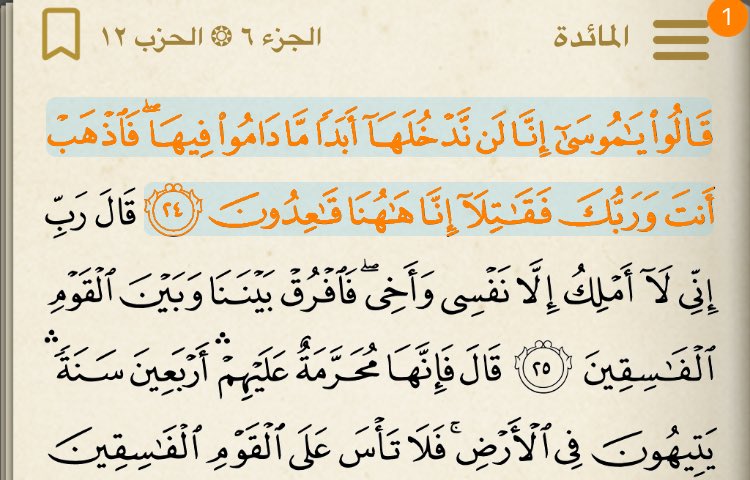 المائدة الجزء ٦ ۞ الحزب ١٢ 1
قَالُوا۟ يَـٰمُوسَىٰٓ إِنَّا لَن نَّدْخُلَهَآ أَبَدًۭا مَّا دَامُوا۟ فِيهَا ۖ فَٱذْهَبْ
أَنتَ وَرَبُّكَ فَقَـٰتِلَآ إِنَّا هَـٰهُنَا قَـٰعِدُونَ ٢٤ قَالَ رَبِّ
إِنِّى لَآ أَمْلِكُ إِلَّا نَفْسِى وَأَخِى ۖ فَٱفْرُقْ بَيْنَنَا وَبَيْنَ ٱلْقَوْمِ
ٱلْفَـٰسِقِينَ ٢٥ قَالَ فَإِنَّهَا مُحَرَّمَةٌ عَلَيْهِمْ ۛ أَرْبَعِينَ سَنَةًۭ ۛ
يَتِيهُونَ فِى ٱلْأَرْضِ ۚ فَلَا تَأْسَ عَلَى ٱلْقَوْمِ ٱلْفَـٰسِقِينَ